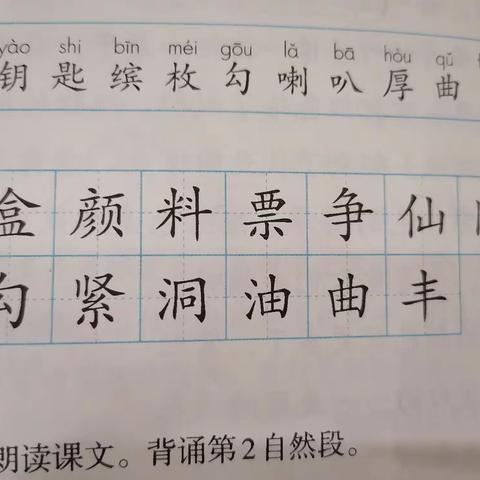 yào shi bīn méi gōu lǎ bā hòu qǔ
钥 匙 缤 枚 勾 喇 叭 厚 曲
盒 颜 料 票 争 仙
勾 紧 洞 油 曲 丰
朗读课文。背诵第2自然段。